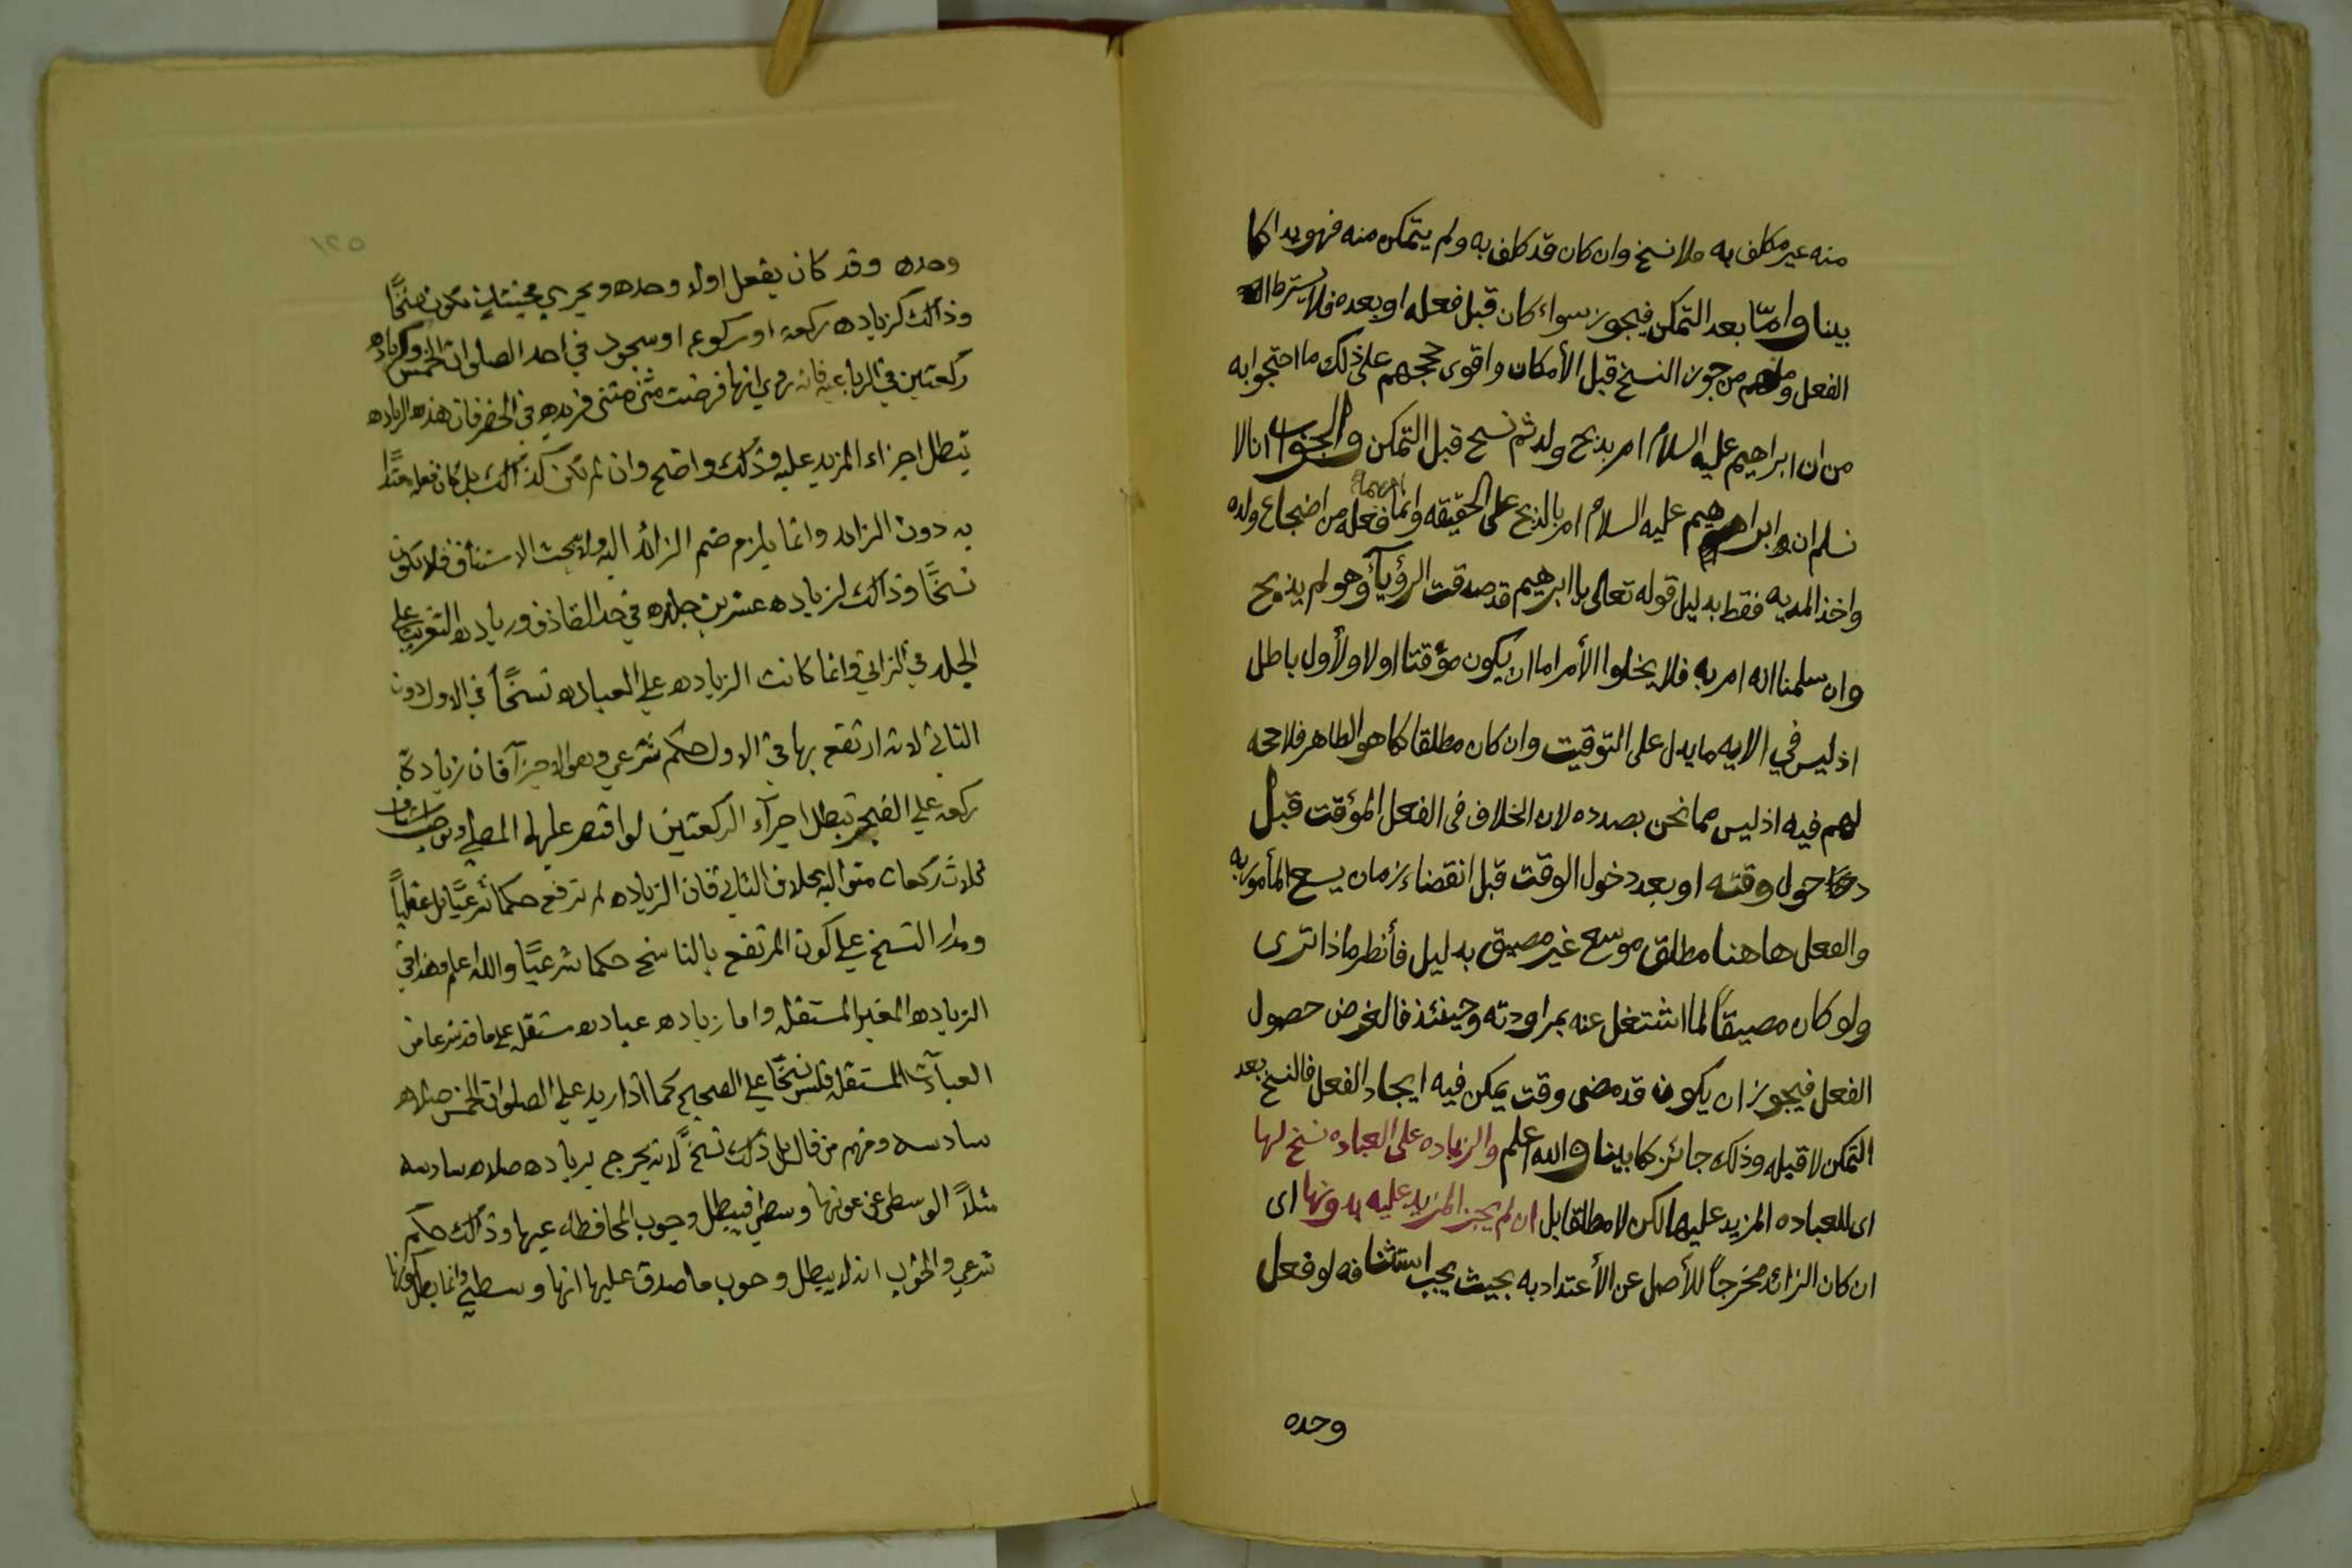 منه عير مكلف به فلا نسخ وان كان قد كلف به ولم يتمكن منه فهو بدا كما
بينا وامّا بعد التمكن فيجوز سواء كان قبل فعله او بعده فلا يشترط
الفعل ومنهم من جوز النسخ قبل الأمكان واقوى حججهم على ذلك ما احتجوا به
من ان ابراهيم عليه السلام امر بذبح ولده ثم نسخ قبل التمكن والجواب انا لا
نسلم ان ابراهيم عليه السلام امر بالذبح على الحقيقه وانما امر بما فعله من اضجاع ولده
واخذ المديه فقط بدليل قوله تعالى يا ابرهيم قد صدقت الرؤيآ وهو لم يذبح
وان سلمنا انه امر به فلا يخلوا الأمر اما ان يكون مؤقتا او لا والأول باطل
اذ ليس في الايه ما يدل على التوقيت وان كان مطلقا كما هو الظاهر فلا حجه
لهم فيه اذ ليس مما نحن بصدده لان الخلاف فى الفعل المؤقت قبل
دخول وقته او بعد دخول الوقت قبل انقضاء زمان يسع المأمور به
والفعل هاهنا مطلق موسع غير مضيق بدليل فأنظر ماذا ترى
ولو كان مضيقاً لما اشتغل عنه بمراودته وحينئذ فالغرض حصول
الفعل فيجوز ان يكون قد مضى وقت يمكن فيه ايجاد الفعل فالنسخ بعد
التمكن لا قبله وذلك جائز كما بينا والله اعلم والزياده على العباده نسخ لها
اى للعباده المزيد عليها لكن لا مطلقا بل ان لم يجز المزيد عليه بدونها اى
ان كان الزائد مخرجاً للأصل عن الأعتداد به بحيث يجب استئنافه لو فعل
وحده
١٢٥
وحده وقد كان يفعل اولا وحده ويجزي فحينئذٍ تكون نسخًا
وذالك كزياده ركعه او ركوع او سجود في احد الصلوات الخمس وكزياده
ركعتين في الرباعيه فانه روي انها فرضت مثنى مثنى فزيده في الحضر فان هذه الزياده
تبطل اجزاء المزيد عليه وذلك واضح وان لم تكن كذالك بل كان فعله معتدًا
به دون الزائد وانما يلزم ضم الزائد اليه ولا يجب الاستئناف فلا تكون
نسخًا وذالك كزياده عشرين جلده في حد القاذف وزياده التغريب على
الجلد في الزاني وانما كانت الزياده علي العباده نسخًا في الاول دون
الثاني لانه ارتفع بها في الاول حكم شرعي وهو الاجزآ فان زيادة
ركعه علي الفجر تبطل اجزآء الركعتين لو اقتصر عليها المصلي ويوجب استئناف
ثلاث ركعات متواليه بخلاف الثاني فان الزياده لم ترفع حكما شرعيًا بل عقليًا
ومدار النسخ علي كون المرتفع بالناسخ حكما شرعيًا والله اعلم وهذا في
الزياده الغير المستقله واما زياده عباده مستقله على ما قد شرعا من
العبادآت المستقله فليس نسخًا علي الصحيح كما اذا زيد علي الصلوات الخمس صلاه
سادسه ومنهم من قال بل ذلك نسخًا لانه يخرج بزياده صلاه سادسه
مثلاً الوسطى عن كونها وسطى فيبطل وجوب المحافظه عيها وذالك حكم
شرعي والجواب انه لا يبطل وجوب ما صدق عليها انها وسطي وانما يبطل كونها